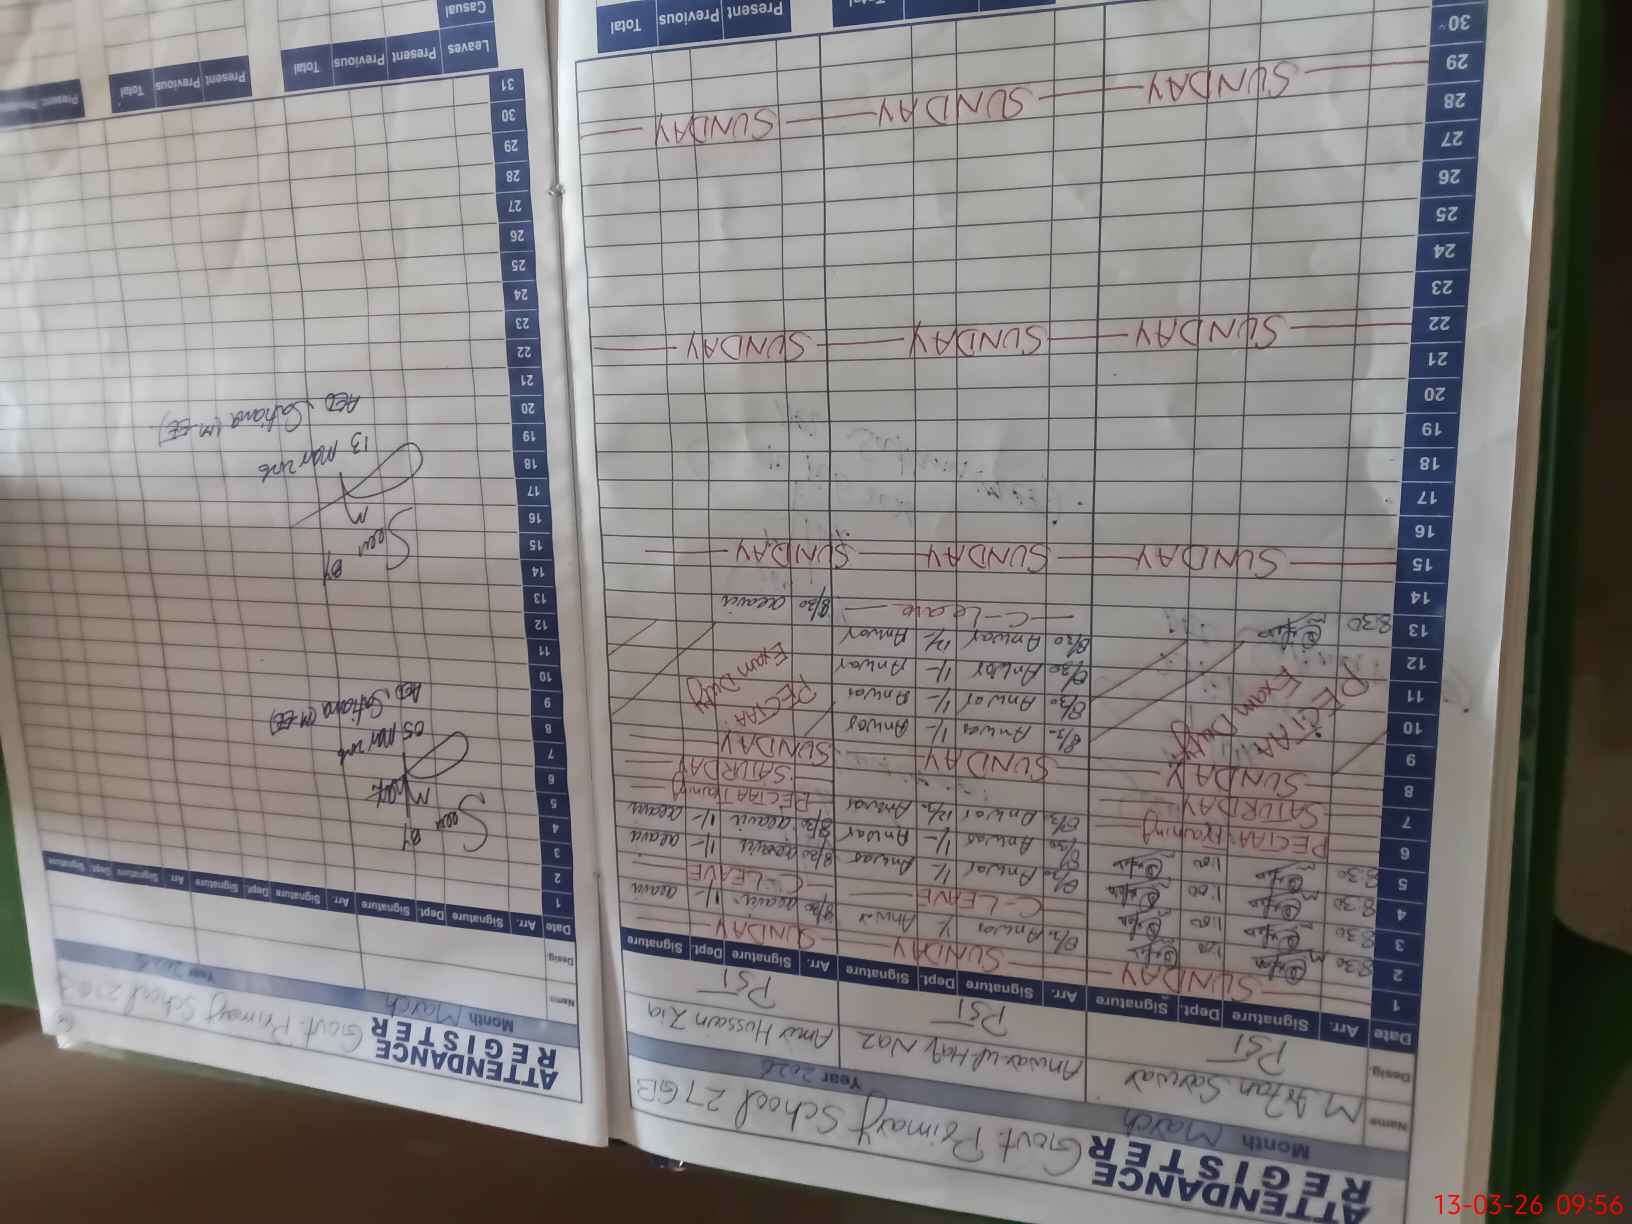 ATTENDANCE REGISTER
Govt. Primary School 27GB
Month March Year 2026
Name M Irfan Sarwar Anwar-ul-Haq Naz Amir Hussain Zia
Desig. PST PST PST
Date Arr. Signature Dept. Signature Arr. Signature Dept. Signature Arr. Signature Dept. Signature
1 SUNDAY SUNDAY SUNDAY
2 8:30 1:00 Anwar Anwar 8/30 1/-
3 8:30 1:00 C-LEAVE C-LEAVE
4 8:30 1:00 8/30 Anwar 1/- Anwar 8/30 1/-
5 8:30 1:00 8/30 Anwar 1/- Anwar 8/30 1/-
6 PECTAA Training 8/30 Anwar 12/30 Anwar PECTAA Training
7 SATURDAY SATURDAY
8 SUNDAY SUNDAY SUNDAY
9 Anwar 1/- Anwar
10 PECTAA Exam Duty 8/30 Anwar 1/- Anwar PECTAA Exam Duty
11 8/30 Anwar 1/- Anwar
12 8/30 Anwar 12/- Anwar
13 8:30 C-Leave 8/30
14
15 SUNDAY SUNDAY SUNDAY
16
17
18
19
20
21
22 SUNDAY SUNDAY SUNDAY
23
24
25
26
27
28
29 SUNDAY SUNDAY SUNDAY
30
Present Previous Total
ATTENDANCE REGISTER
Govt. Primary School 27GB
Month March Year 2026
Name
Desig.
Date Arr. Signature Dept. Signature Arr. Signature Dept. Signature Arr. Signature Dept. Signature
1
2
3
4
5
6
7
8
9
10
11
12
13
14
15
16
17
18
19
20
21
22
23
24
25
26
27
28
29
30
31
Seen By
05 Mar 2026
AEO Satiana (M-EE)
Seen By
13 Mar 2026
AEO Satiana (M-EE)
Leaves Present Previous Total Present Previous Total Present Previous
Casual
13-03-26 09:56